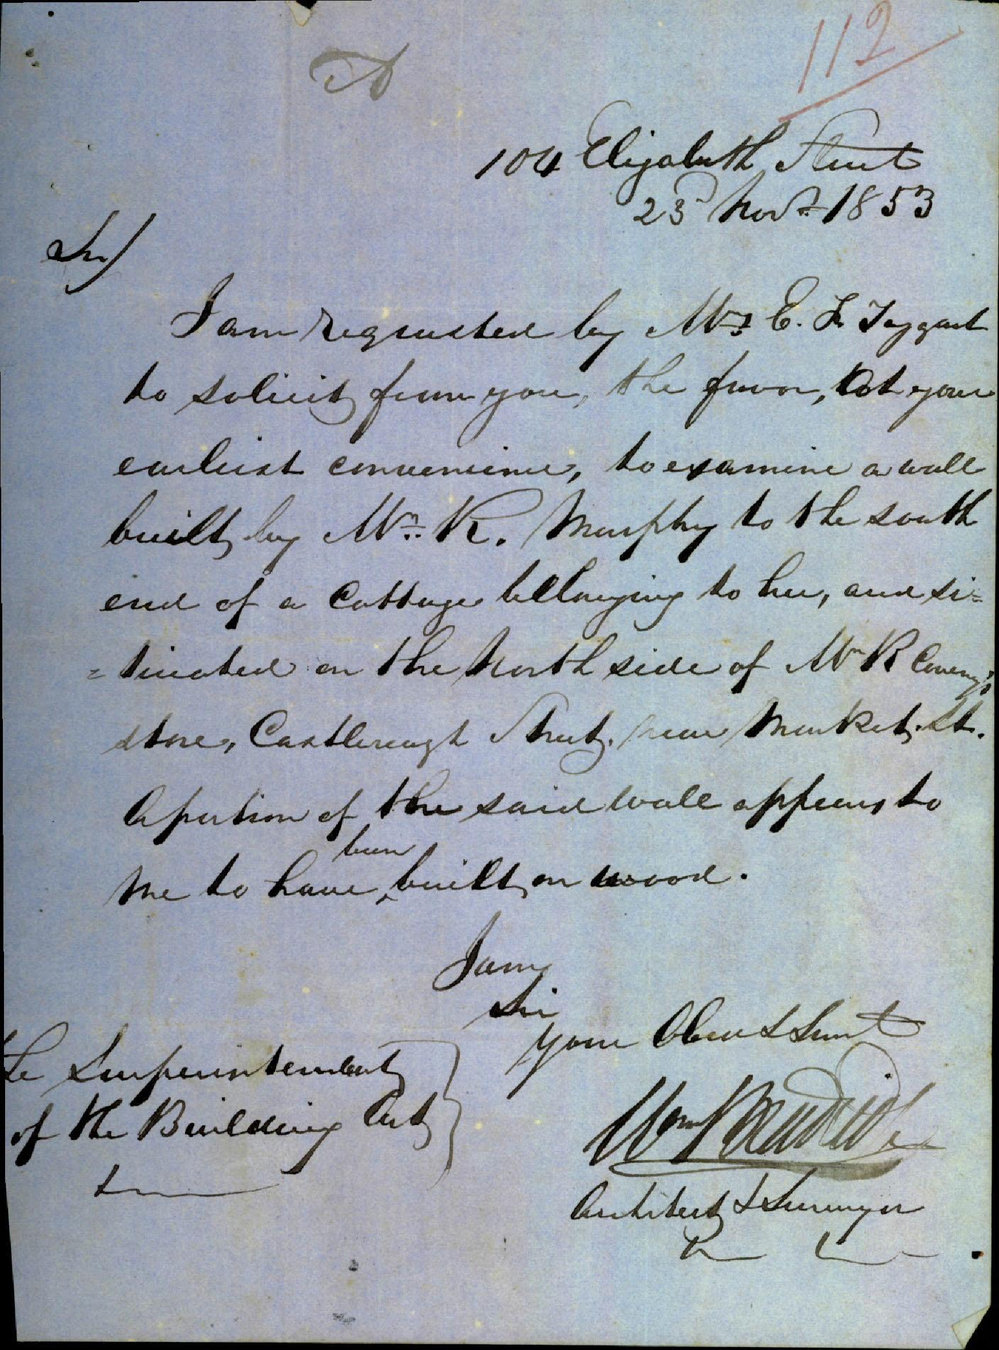 112
A
104 Elizabeth Street
23d Novr. 1853
Sir)
I am requested by Mrs E. F. Taggart
to solicit from you, the favor, at your
earliest convenience, to examine a wall
built by Mr. R. Murphy to the south
end of a Cottage belonging to her, and si=
=tuated on the North side of Mr R
store, Castlereagh Street, near Market St.
A portion of the said wall appears to
me to have been built on wood.
I am
Sir
your Obent Servt
The Superintendent
of the Building Act
Wm
Architect & Surveyor